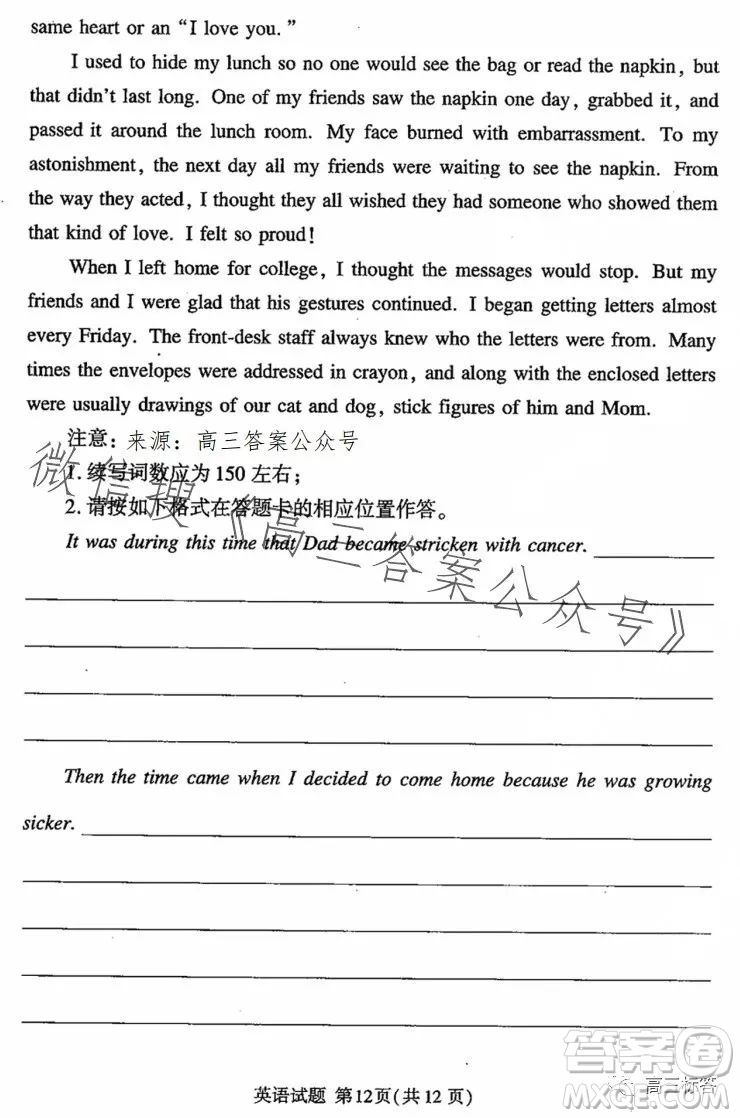 same heart or an “I love you.”
I used to hide my lunch so no one would see the bag or read the napkin, but
that didn’t last long. One of my friends saw the napkin one day, grabbed it, and
passed it around the lunch room. My face burned with embarrassment. To my
astonishment, the next day all my friends were waiting to see the napkin. From
the way they acted, I thought they all wished they had someone who showed them
that kind of love. I felt so proud!
When I left home for college, I thought the messages would stop. But my
friends and I were glad that his gestures continued. I began getting letters almost
every Friday. The front-desk staff always knew who the letters were from. Many
times the envelopes were addressed in crayon, and along with the enclosed letters
were usually drawings of our cat and dog, stick figures of him and Mom.
注意: 来源: 高三答案公众号
1. 续写词数应为 150 左右;
2. 请按如下格式在答题卡的相应位置作答。
It was during this time that Dad became stricken with cancer.
微信搜《高三答案公众号》
Then the time came when I decided to come home because he was growing
sicker.
英语试题 第12页(共 12 页)
答案卷
高三标答
MXQE.COM